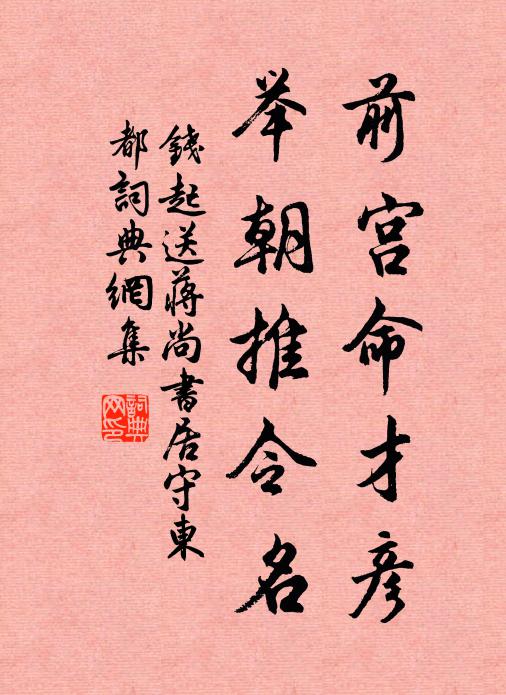 前宫命才彦
举朝推令名
錢起送蔣尚書居守東
都詞典網集
詞典
网印